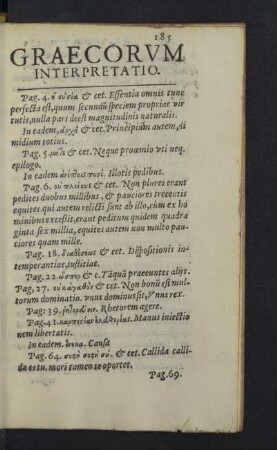 185
GRAECORVM
INTERPRETATIO.
Pag. 4. ἡ οὐσία & cet. Essentia omnis tunc
perfecta est, quum secundũ speciem propriae vir
tutis, nulla pars deest magnitudinis naturalis.
In eadem, ἀρχὴ & cet. Principium autem, di
midium totius.
Pag. 5. & cet. Neque proœmio vti neq.
epilogo.
In eadem ἀνίπτοις ποσί. Illotis pedibus.
Pag. 6. οὐ πλείους & cet. Non plures erant
pedites duobus millibus, & pauciores trecentis
equites. qui autem relicti sunt ab illo, cùm ex ho
minibus excessit, erant peditum quidem quadra
ginta sex millia, equites autem non multo pau
ciores quam mille.
Pag. 18. διαθέσεις & cet. Dispositionis in-
temperantiae, iustitiae.
Pag. 22. ὥσπερ & c. Tãquã praeeuntes alijs.
Pag. 27. οὐκ ἀγαθὸν & cet. Non bonũ est mul
torum dominatio. vnus dominus sit, Vnus rex.
Pag: 39. ῥητορεύειν. Rhetorem agere.
Pag. 41. Manus iniectio
nem libertatis.
In eadem. ἕνεκα. Causa
Pag. 64. σοφὴ σοφὴ σὺ. & cet. Callida calli
da es tu. mori tamen te oportet.
Pag. 69.